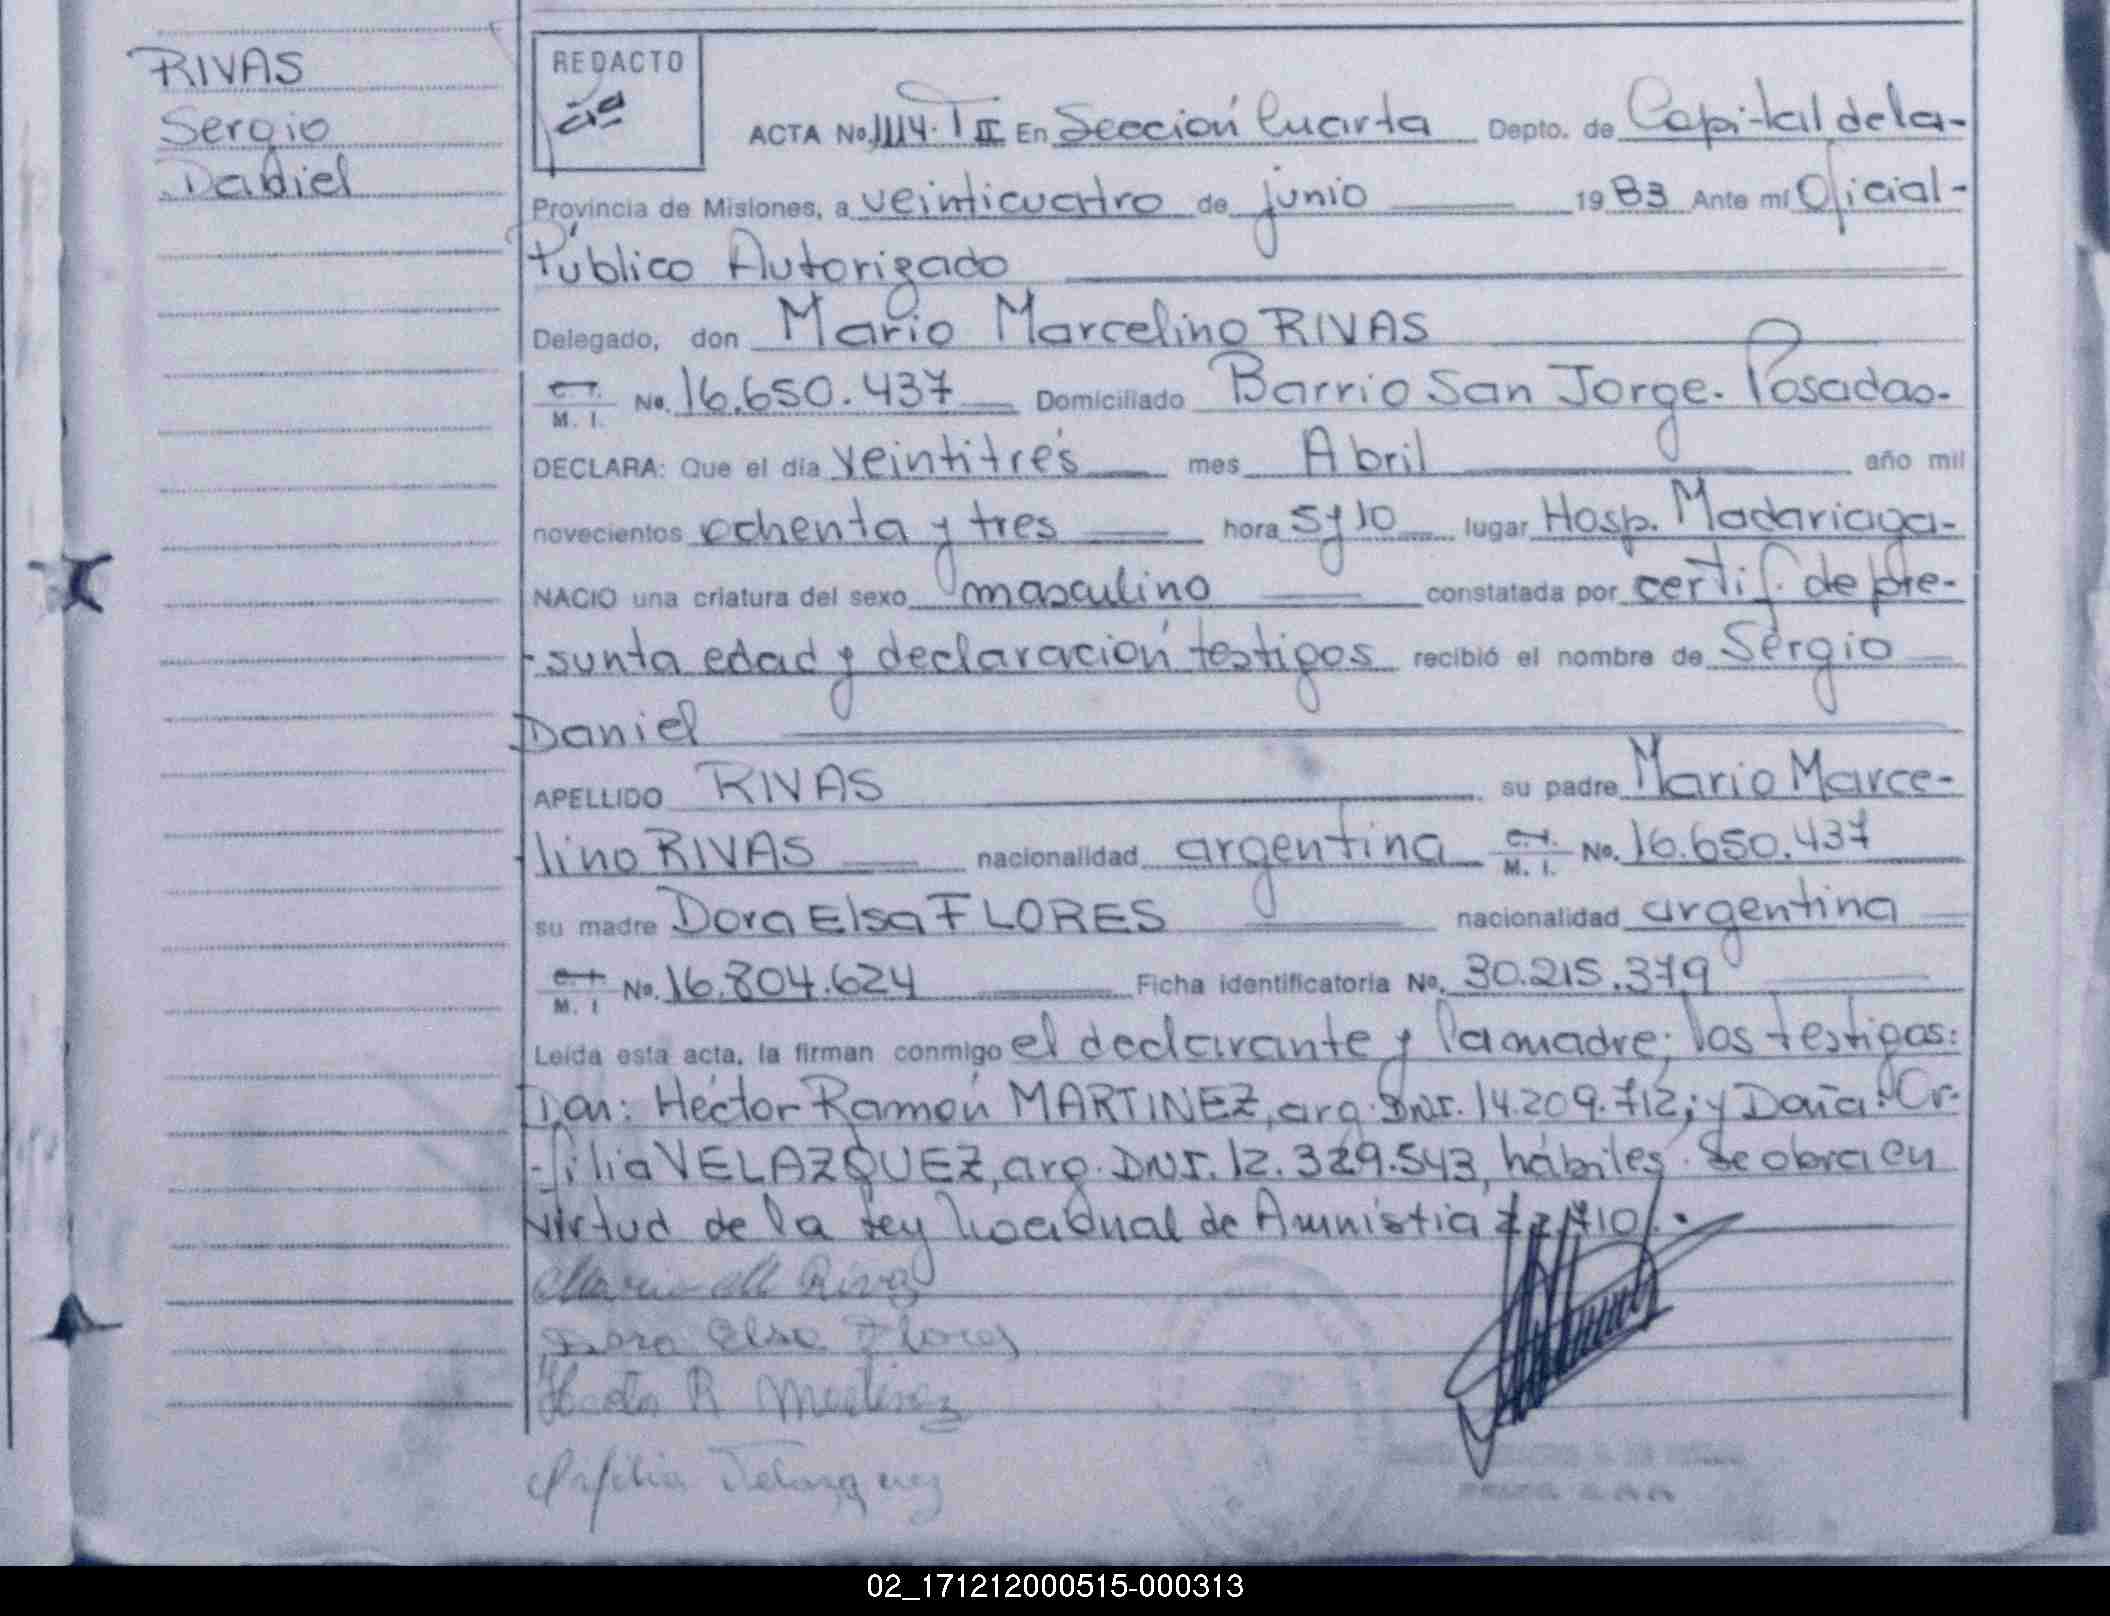 RIVAS
Sergio
Daniel
REDACTO
ACTA No. 1114. T II En Sección Cuarta Depto. de Capital de la-
Provincia de Misiones, a veinticuatro de junio 1983 Ante mí Oficial-
Público Autorizado
Delegado, don Mario Marcelino RIVAS
C. I. M. I. No. 16.650.437 Domiciliado Barrio San Jorge. Posadas.
DECLARA: Que el día veintitrés mes Abril año mil
novecientos ochenta y tres hora 5y10 lugar Hosp. Madariaga-
NACIO una criatura del sexo masculino constatada por certif. de pre-
-sunta edad y declaración testigos recibió el nombre de Sergio
Daniel
APELLIDO RIVAS su padre Mario Marce-
lino RIVAS nacionalidad argentina C. I. M. I. No. 16.650.437
su madre Dora Elsa FLORES nacionalidad argentina
C. I. M. I No. 16.804.624 Ficha identificatoria No. 30.215.379
Leída esta acta, la firman conmigo el declarante y la madre; los testigos:
Don: Héctor Ramón MARTINEZ, arg. DNI. 14.209.712; y Doña: Or-
-filia VELAZQUEZ, arg. DNI. 12.329.543, hábiles. Se obra en
virtud de la Ley Nacional de Amnistia 22.410.
Mario M Rivas
Dora Elsa Flores
Hector R Martinez
Orfilia Velazquez
02_171212000515-000313